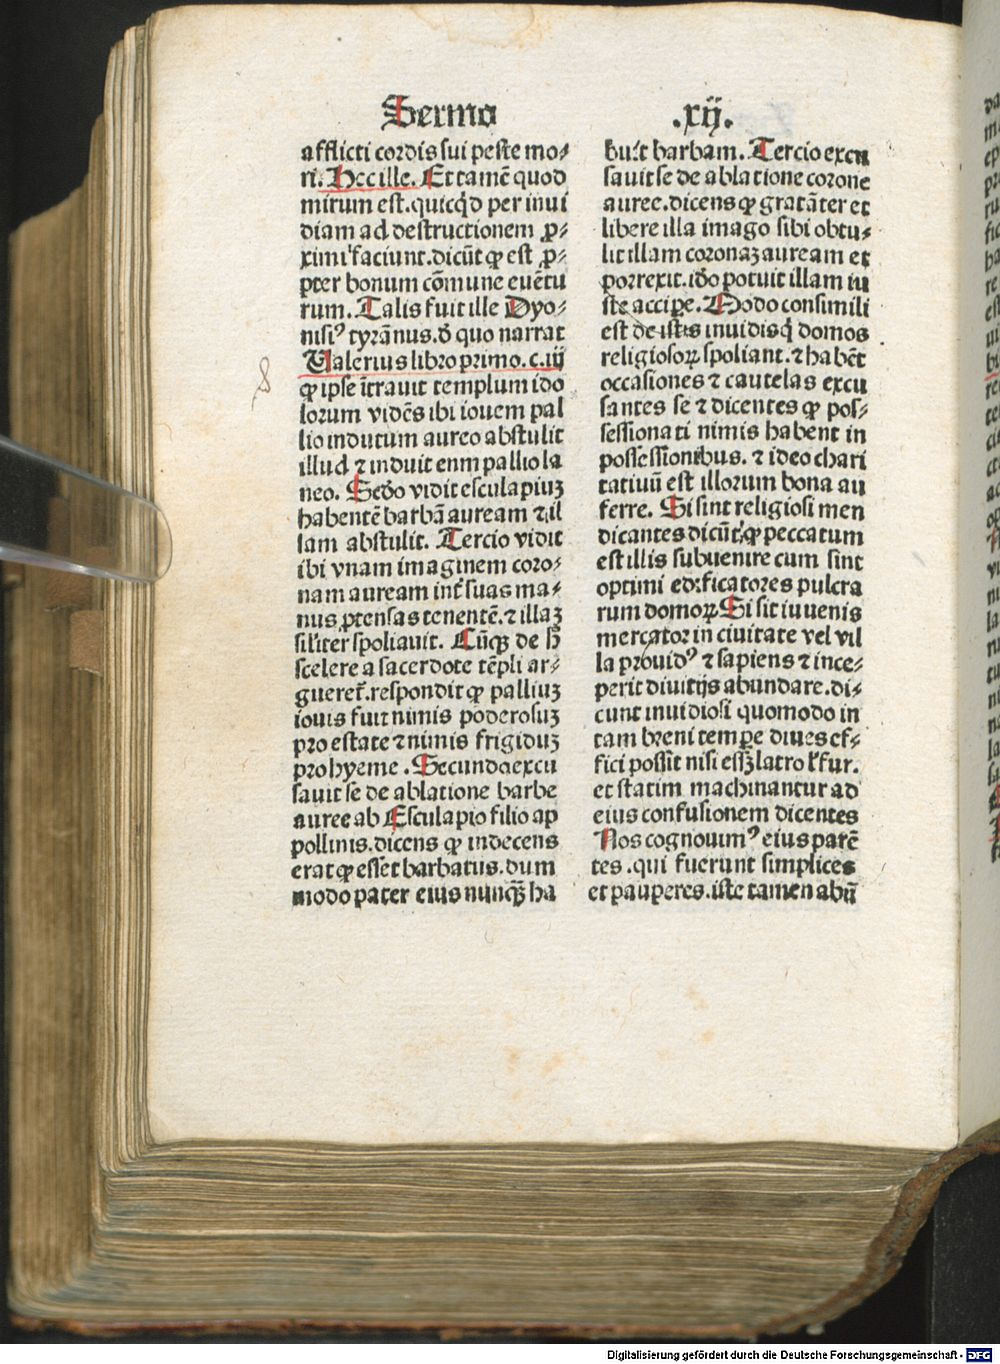 Sermo .xij.
afflicti cordis sui peste mo⸗
ri. Hec ille. Et tamē quod
mirum est. quicq̄d per inui
diam ad destructionem ꝓ⸗
ximi faciunt. dicūt ꝙ est ꝓ⸗
pter bonum cōmune euētu
rum. Talis fuit ille Dyo⸗
nisiꝰ tyrānus. ð quo narrat
Ualerius libro primo. c. iij
ꝙ ipse ītrauit templum ido
lorum vidēs ibi iouem pal
lio indutum aureo abstulit
illud ⁊ induit eum pallio la
neo. Secdo vidit esculapiuꝫ
habentē barbā auream ⁊ il
lam abstulit. Tercio vidit
ibi vnam imaginem coro⸗
nam auream int̄ suas ma⸗
nus ꝓtensas tenentē. ⁊ illaꝫ
sil'iter spoliauit. Cūqꝫ de h̄
scelere a sacerdote tēpli ar⸗
gueret̄. respondit ꝙ palliuꝫ
iouis fuit nimis poderosuꝫ
pro estate ⁊ nimis frigiduꝫ
pro hyeme. Secundo excu
sauit se de ablatione barbe
auree ab Esculapio filio ap
pollinis. dicens ꝙ indecens
erat ꝙ esset barbatus. dum
modo pater eius nunq̄ꝫ ha
buit barbam. Tercio excu
sauit se de ablatione corone
auree. dicens ꝙ gratāter et
libere illa imago sibi obtu⸗
lit illam coronaꝫ auream et
porrexit. iđo potuit illam iu
ste accipe. Modo consimili
est de istis inuidis q̄ domos
religiosoꝝ spoliant. ⁊ habēt
occasiones ⁊ cautelas excu
santes se ⁊ dicentes ꝙ pos⸗
sessionati nimis habent in
possessionibus. ⁊ ideo chari
tatiuū est illorum bona au
ferre. Si sint religiosi men
dicantes dicūt. ꝙ peccatum
est illis subuenire cum sint
optimi edificatores pulcra
rum domoꝝ. Si sit iuuenis
mercator in ciuitate vel vil
la prouidꝰ ⁊ sapiens ⁊ ince⸗
perit diuitijs abundare. di⸗
cunt inuidiosi quomodo in
tam breui tempe diues ef⸗
fici possit nisi eēt latro l' fur.
et statim machinantur ad
eius confusionem dicentes
Nos cognouimꝰ eius parē
tes. qui fuerunt simplices
et pauperes. iste tamen abū
Digitalisierung gefördert durch die Deutsche Forschungsgemeinschaft - DFG